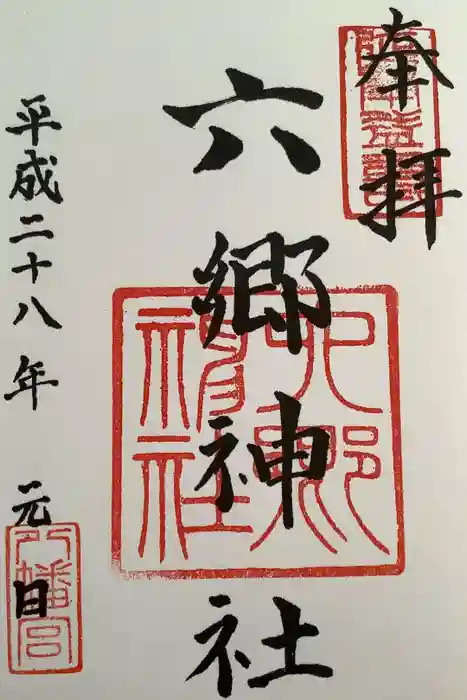 奉拝
六郷神社
平成二十八年 元日
六郷神社
八幡宮